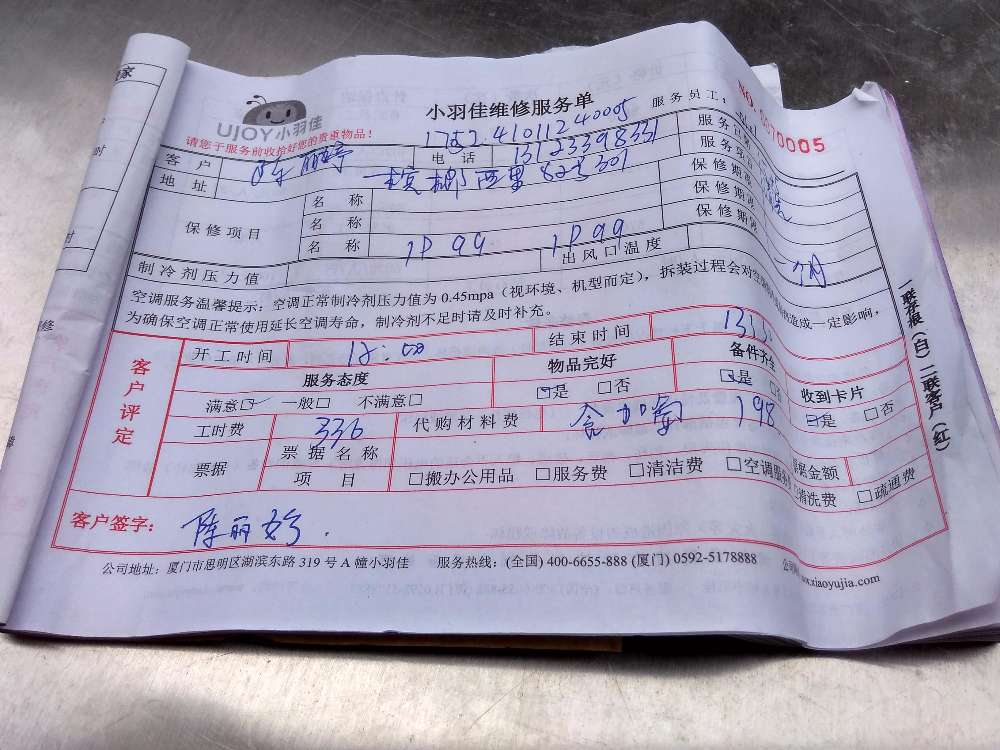 UJOY小羽佳
小羽佳维修服务单
服务员工:
NO. 0070005
请您于服务前收拾好您的贵重物品!
1752.41011240005
客户
电话 13123398331
地址 槟榔西里82号301
保修项目
名称
名称
名称
保修期
保修期
保修期
制冷剂压力值 1P 99 1P 99
出风口温度
一个月
空调服务温馨提示:空调正常制冷剂压力值为 0.45mpa(视环境、机型而定),拆装过程会对空 造成一定影响,
为确保空调正常使用延长空调寿命,制冷剂不足时请及时补充。
客户评定
开工时间 结束时间
服务态度 物品完好 备件齐全 收到卡片
满意☑ 一般□ 不满意□ ☑是 □否 ☑是 ☑是 □否
工时费 336 代购材料费 含加氟 198
票据 票据名称 票据金额
项目 □搬办公用品 □服务费 □清洁费 □空调服务 清洗费 □疏通费
客户签字: 陈丽婷
公司地址:厦门市思明区湖滨东路 319 号 A 幢小羽佳 服务热线:(全国) 400-6655-888 (厦门) 0592-5178888
xiaoyujia.com
一联存根(白)二联客户(红)